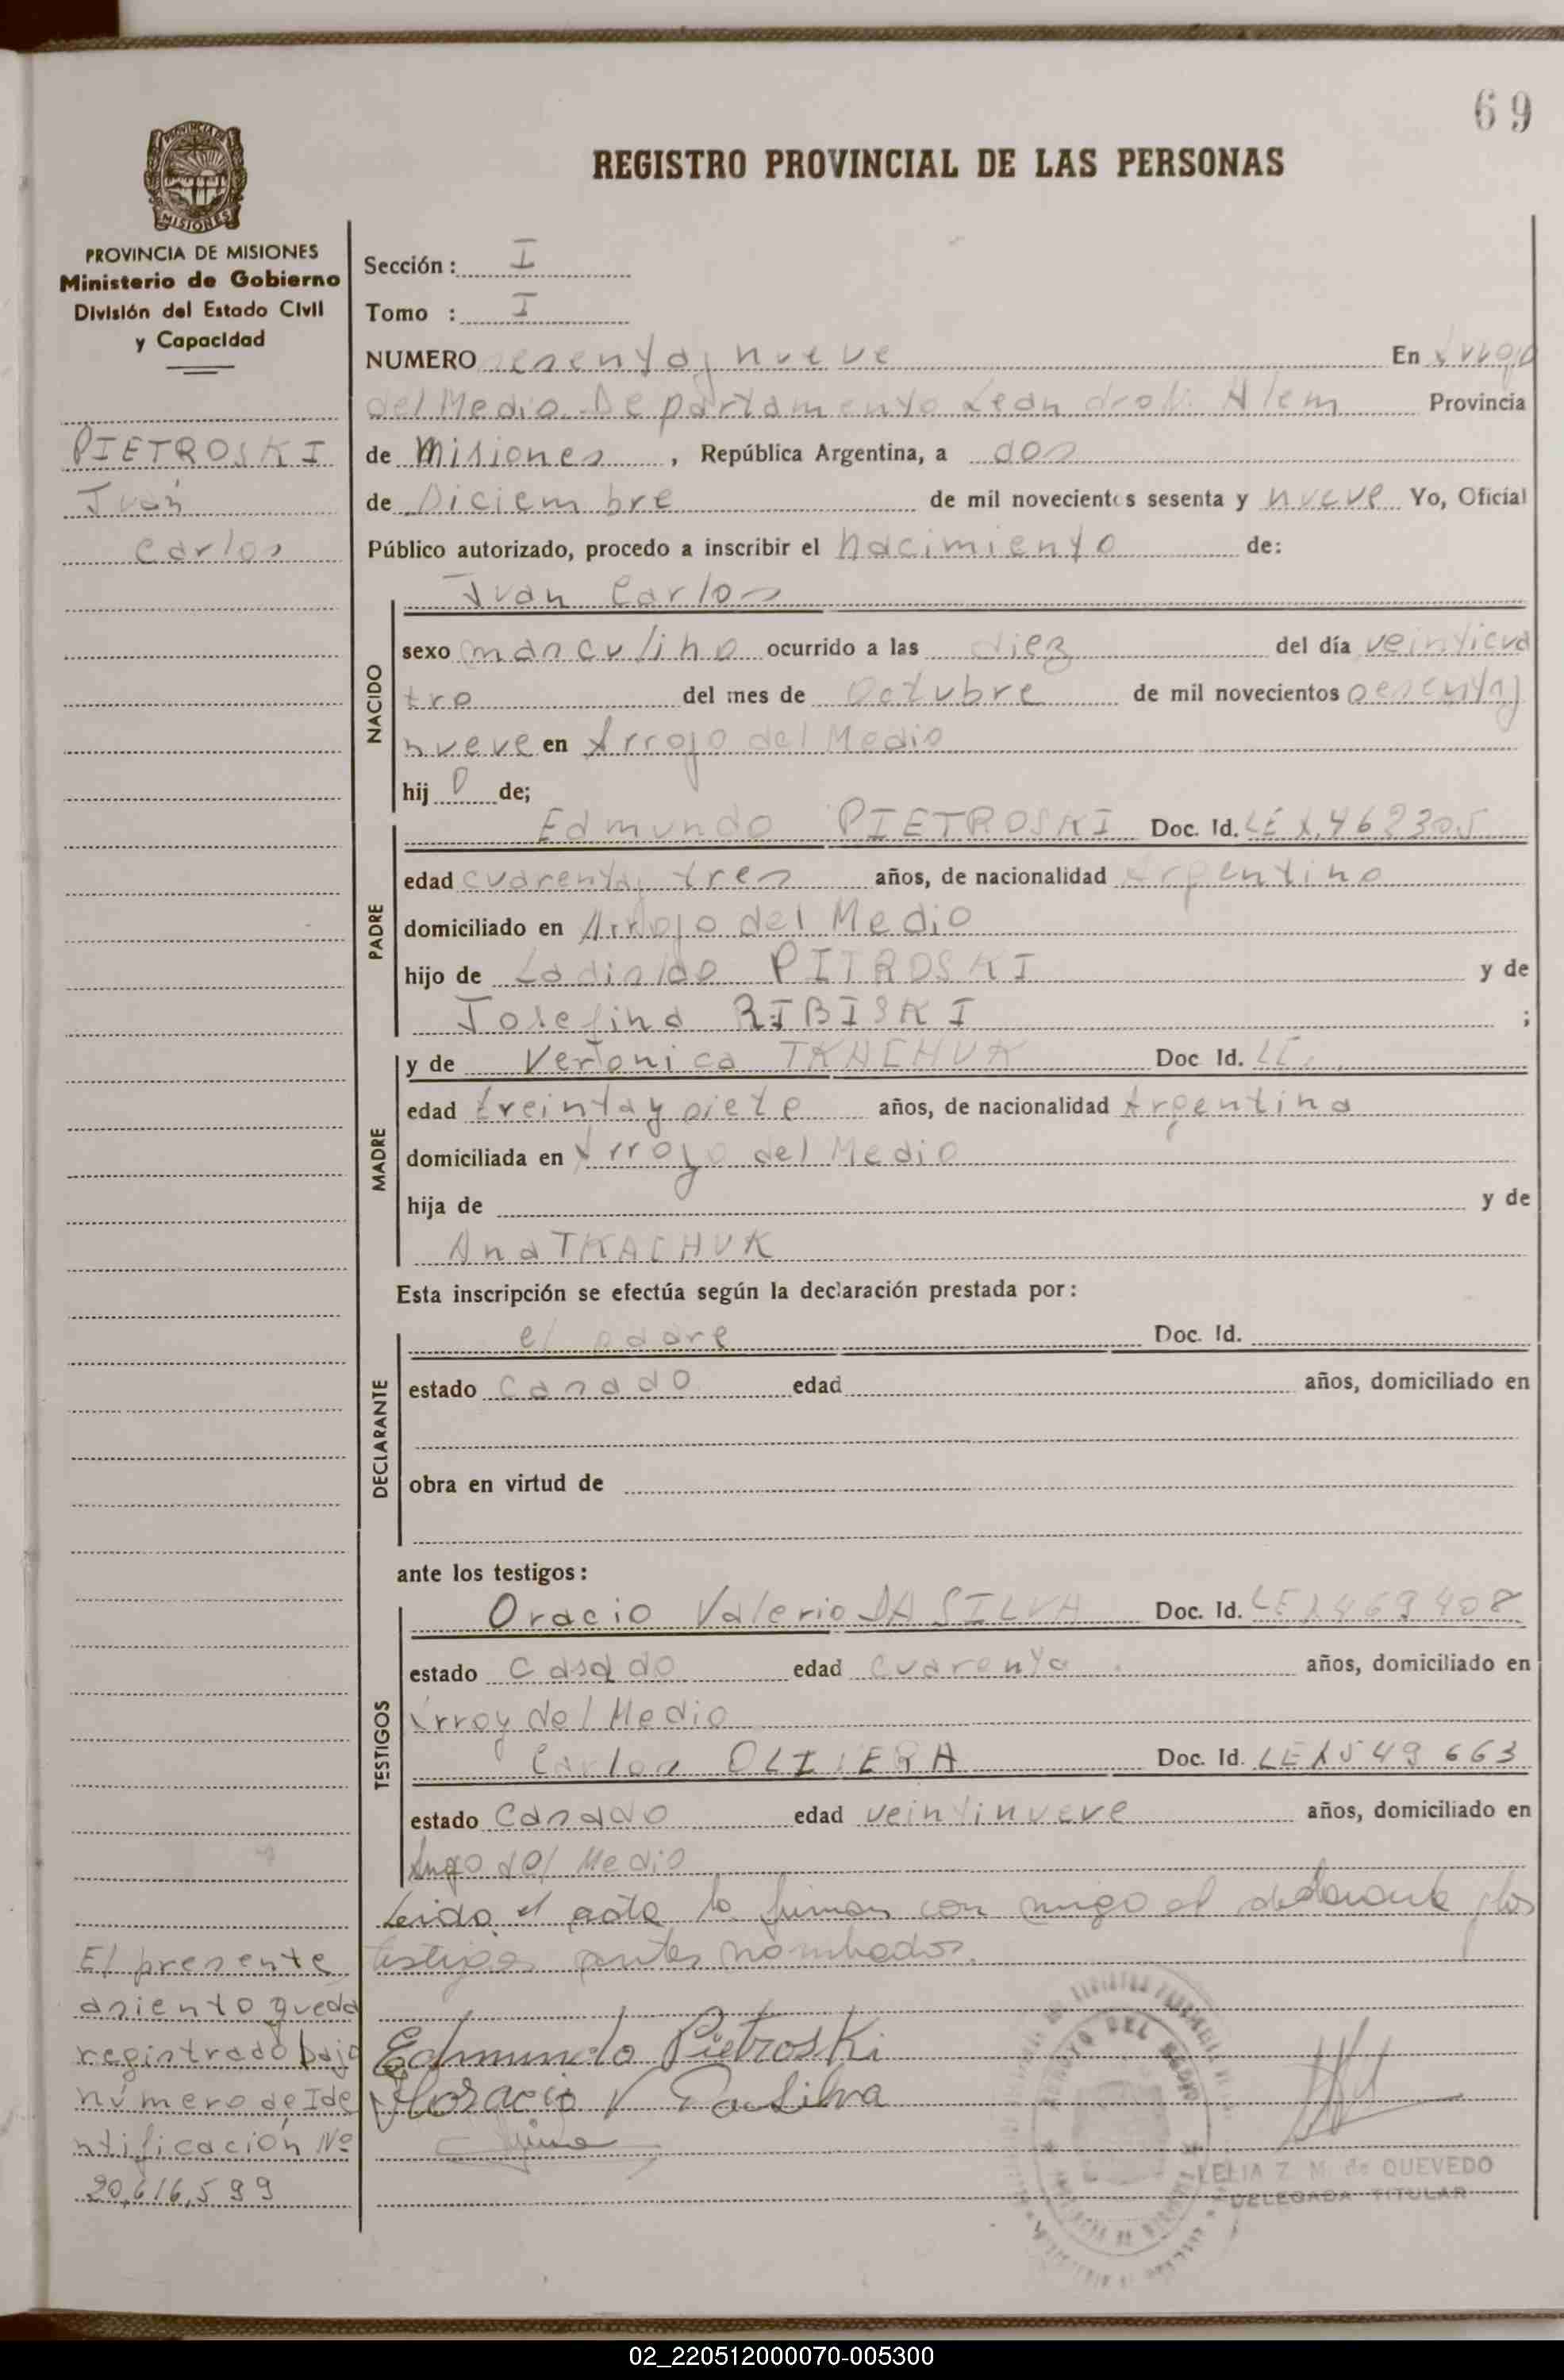 69
REGISTRO PROVINCIAL DE LAS PERSONAS
PROVINCIA DE MISIONES
MISIONES
PROVINCIA DE MISIONES
Ministerio de Gobierno
División del Estado Civil
y Capacidad
PIETROSKI
Juan
Carlos
Sección : I
Tomo : I
NUMERO sesenta y nueve En Arroyo
del Medio Departamento Leandro N. Alem Provincia
de Misiones , República Argentina, a dos
de Diciembre de mil novecientos sesenta y nueve Yo, Oficial
Público autorizado, procedo a inscribir el nacimiento de:
NACIDO
Juan Carlos
sexo masculino ocurrido a las diez del día veinticua
tro del mes de Octubre de mil novecientos sesenta y
nueve en Arroyo del Medio
hij o de;
PADRE
Edmundo PIETROSKI Doc. Id. LE
edad cuarenta y tres años, de nacionalidad Argentino
domiciliado en Arroyo del Medio
hijo de Ladislao PITROSKI y de
Josefina RIBISKI ;
MADRE
y de Veronica TKACHUK Doc Id. LC.
edad treinta y siete años, de nacionalidad Argentina
domiciliada en Arroyo del Medio
hija de y de
Ana TKACHUK
Esta inscripción se efectúa según la declaración prestada por :
DECLARANTE
el padre Doc. Id.
estado Casado edad años, domiciliado en
obra en virtud de
ante los testigos :
TESTIGOS
Oracio Valerio DA SILVA Doc. Id. LE
estado Casado edad cuarenta años, domiciliado en
Arroy del Medio
Carlos OLIVERA Doc. Id. LE 1549663
estado Casado edad veintinueve años, domiciliado en
del Medio
Leido el acta la firman con migo el declarante y los
testigos antes nombrados.
El presente
asiento queda
registrado bajo
número de Ide
ntificación Nº
20,616,599
Edmundo Pietroski
Horacio V Da Silva
ARROYO DEL MEDIO
LELIA Z. M. de QUEVEDO
DELEGADA TITULAR
02_220512000070-005300